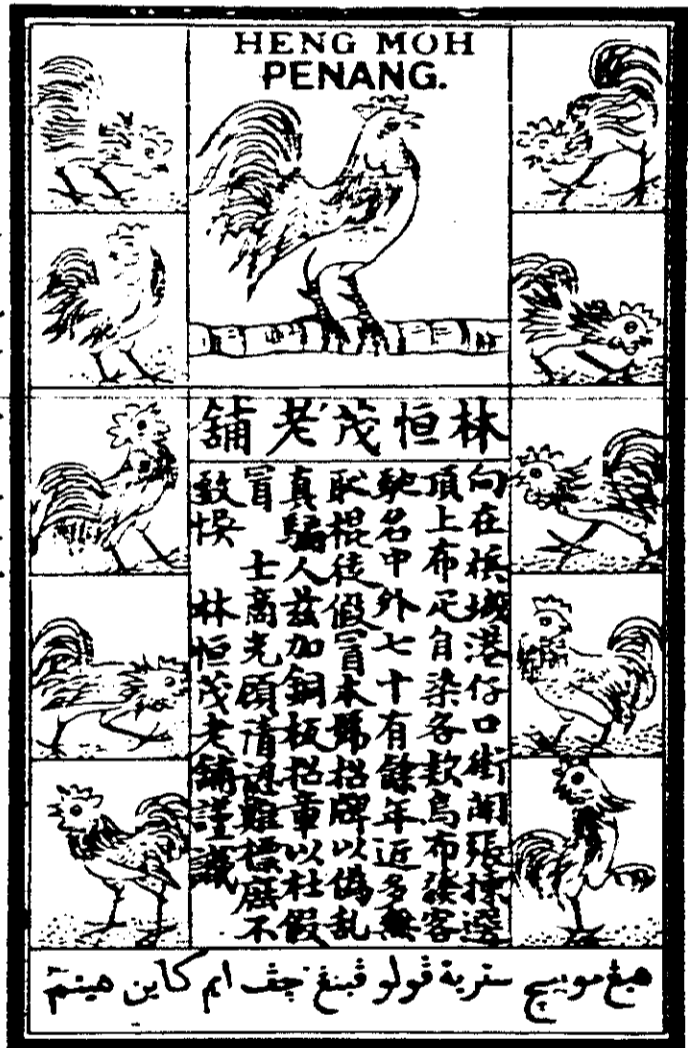 HENG MOH
PENANG.
林恒茂老舖
向在檳城港仔口街開張揀選
頂上布疋自染各款烏布發客
馳名中外七十有餘年近多無
耻棍徒假冒本號招牌以偽乱
真騙人茲加銅板招章以杜假
冒 士商光顧請認雞標庶不
致悮 林恒茂老舖謹識
هيڠ مو بيچ سترية ڤولو ڤينڠ چڤ ايم کاين هيتم